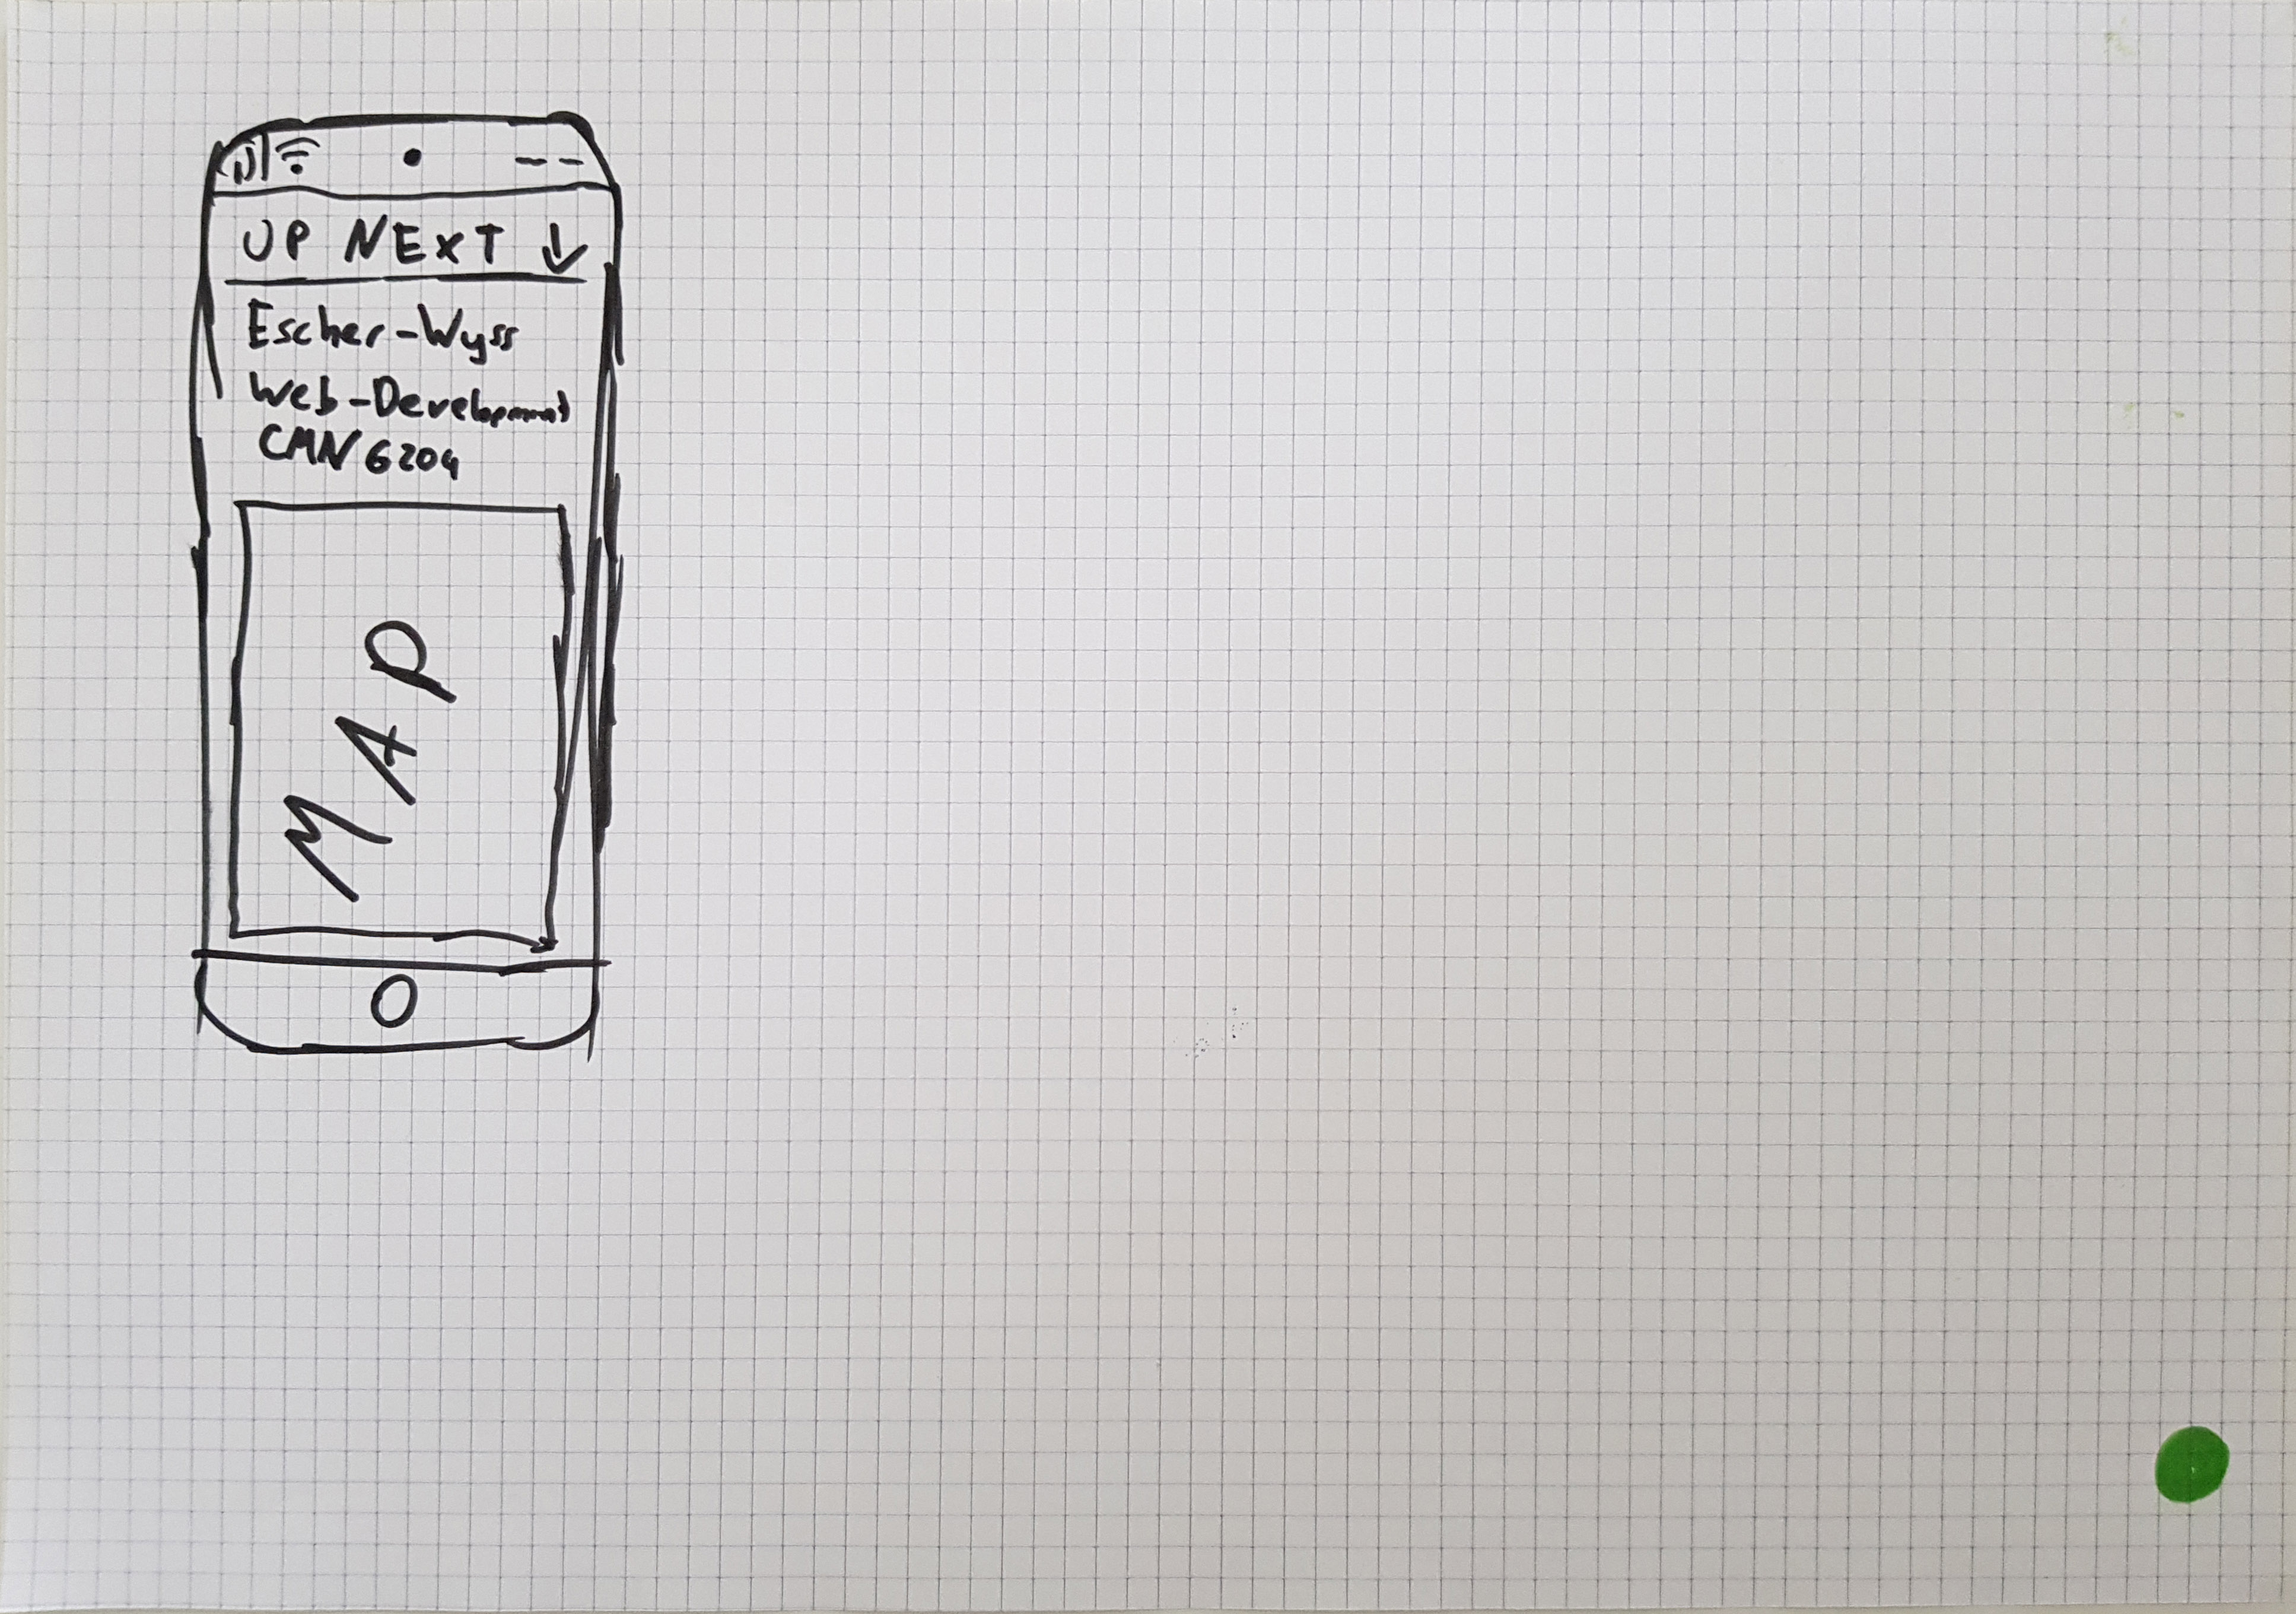 UP NEXT ↓
Escher-Wyss
Web-Development
CMN 6204
MAP